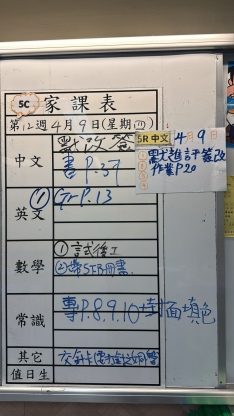 5C 家課表
第12週4月9日(星期四)
中文
默改簽
書P.37
英文
① Gr P.13
數學
① 試後工
②帶5下B冊書
常識
專P.8.9.10+封面填色
其它
值日生
5R 中文 4月9日
作業P20